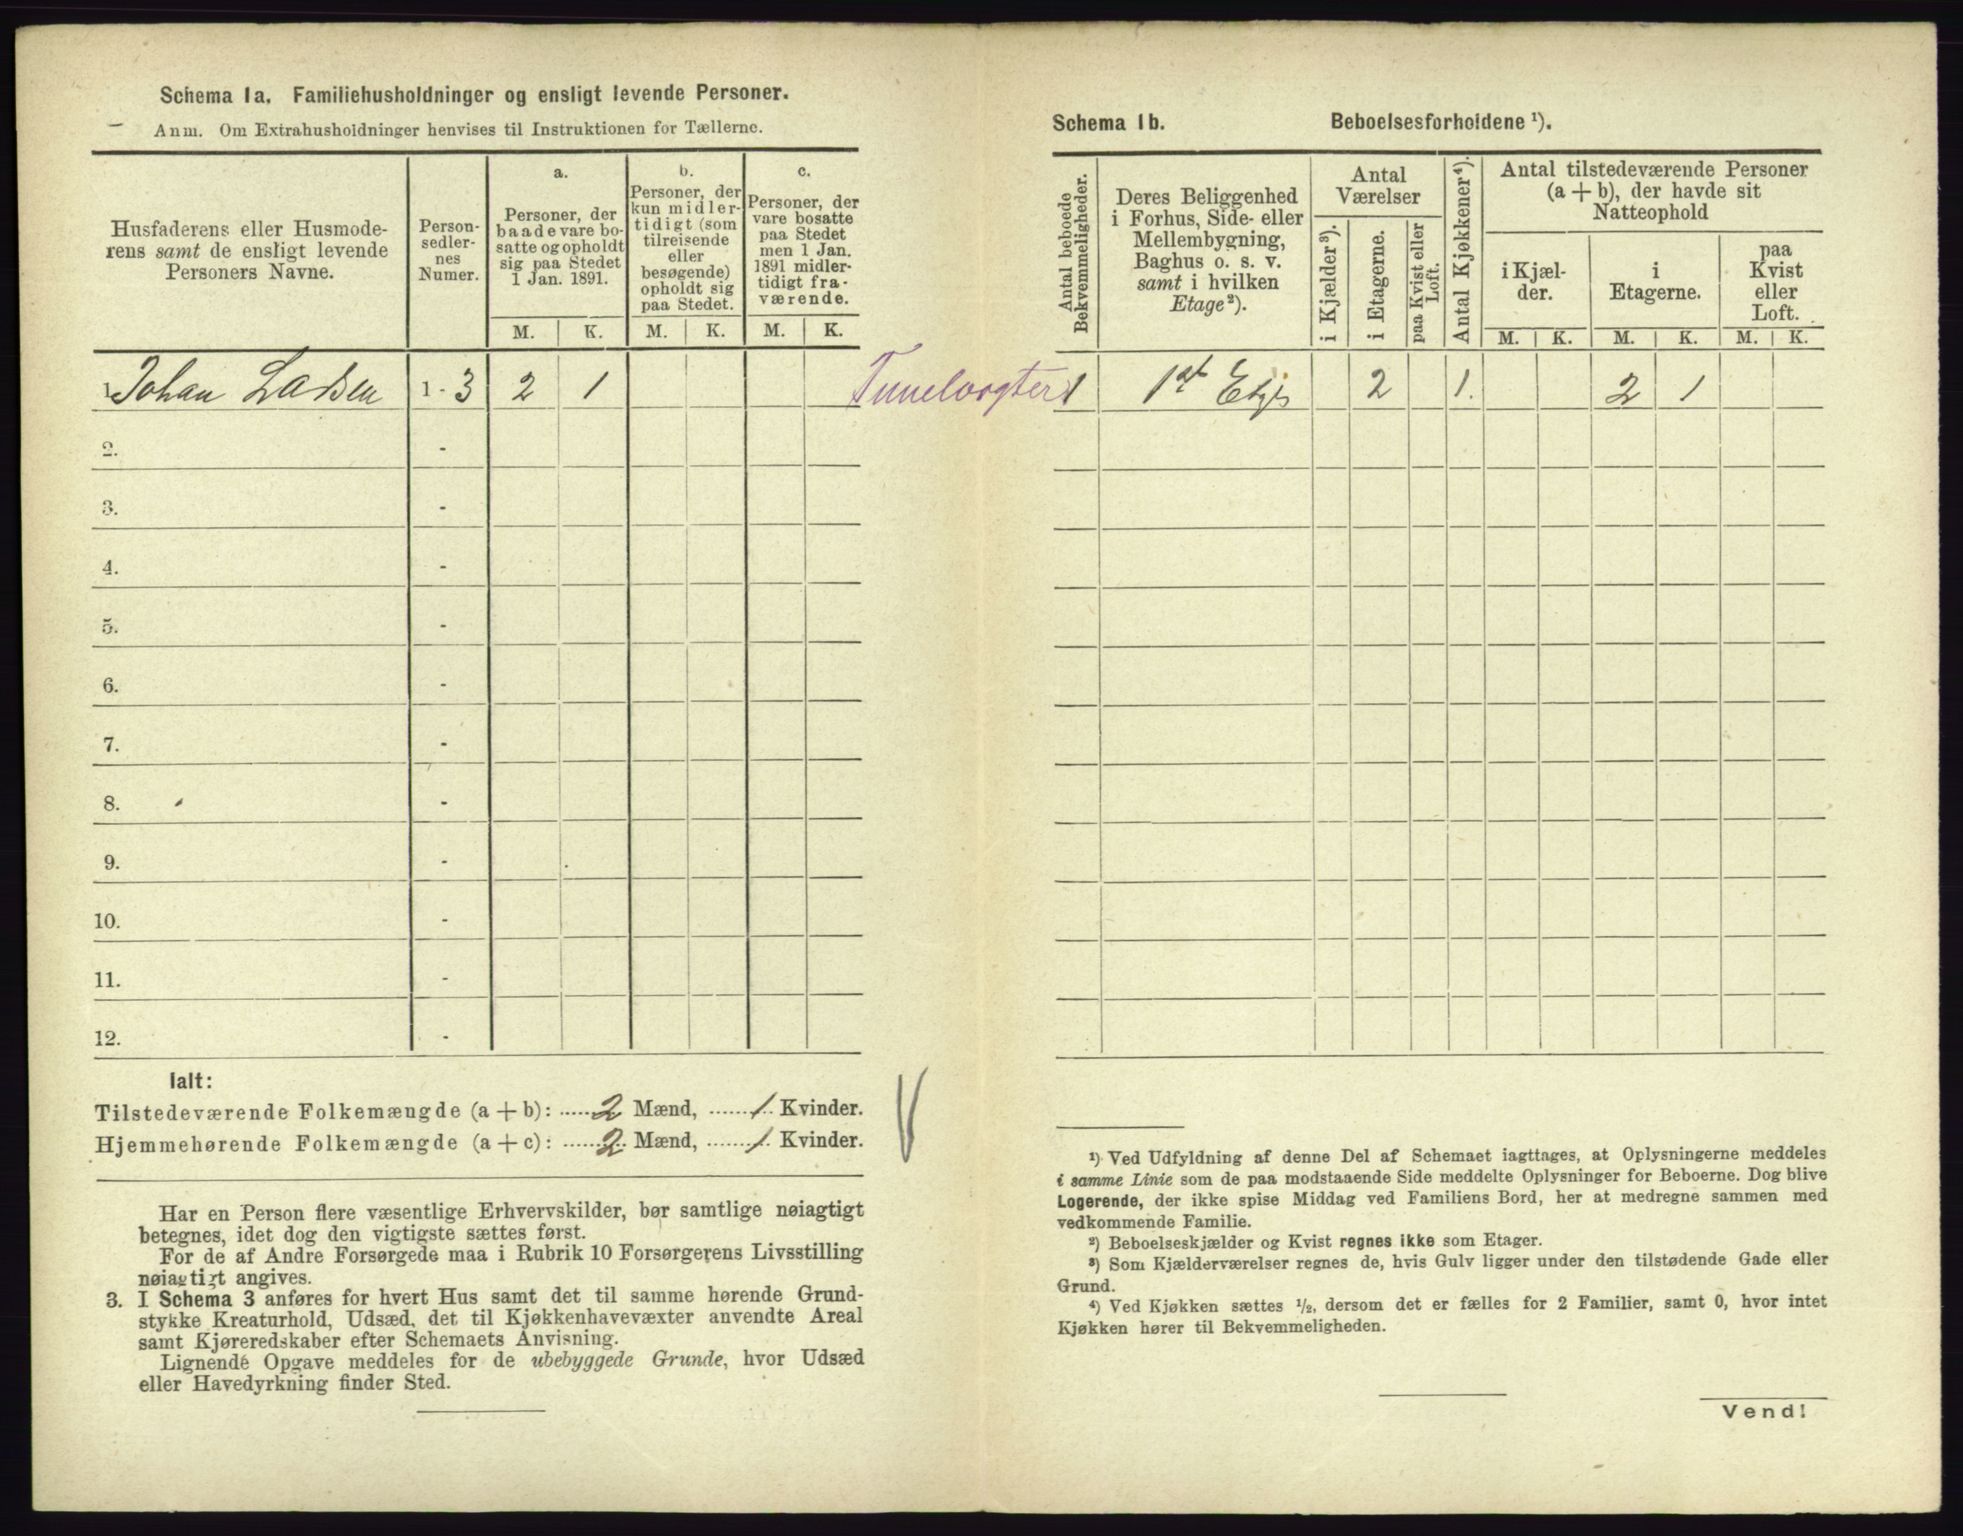 Schema 1a. Familiehusholdninger og ensligt levende Personer.
Anm. Om Extrahusholdninger henvises til Instruktionen for Tællerne.
Husfaderens eller Husmode-
rens samt de ensligt levende
Personers Navne.
Person-
sedler-
nes
Numer.
a.
Personer, der
baade vare bo-
satte og opholdt
sig paa Stedet
1 Jan. 1891.
b.
Personer, der
kun midler-
tidigt (som
tilreisende
eller
besøgende)
opholdt sig
paa Stedet.
c.
Personer, der
vare bosatte
paa Stedet
men 1 Jan.
1891 midler-
tidigt fra-
værende.
M. K. M. K. M. K.
1. Johan Larsen 1 - 3 2 1
2. -
3. -
4. -
5. -
6. -
7. -
8. -
9. -
10. -
11. -
12. -
Ialt:
Tilstedeværende Folkemængde (a + b): 2 Mænd, 1 Kvinder.
Hjemmehørende Folkemængde (a + c): 2 Mænd, 1 Kvinder.
Har en Person flere væsentlige Erhvervskilder, bør samtlige nøiagtigt
betegnes, idet dog den vigtigste sættes først.
For de af Andre Forsørgede maa i Rubrik 10 Forsørgerens Livsstilling
nøiagtigt angives.
3. I Schema 3 anføres for hvert Hus samt det til samme hørende Grund-
stykke Kreaturhold, Udsæd, det til Kjøkkenhavevæxter anvendte Areal
samt Kjøreredskaber efter Schemaets Anvisning.
Lignende Opgave meddeles for de ubebyggede Grunde, hvor Udsæd
eller Havedyrkning finder Sted.
Schema 1b. Beboelsesforholdene ¹).
Antal beboede
Bekvemmeligheder.
Deres Beliggenhed
i Forhus, Side- eller
Mellembygning,
Baghus o. s. v.
samt i hvilken
Etage²).
Antal
Værelser
i Kjælder ³).
i Etagerne.
paa Kvist eller
Loft.
Antal Kjøkkener⁴).
Antal tilstedeværende Personer
(a + b), der havde sit
Natteophold
i Kjæl-
der.
i
Etagerne.
paa
Kvist
eller
Loft.
M. K. M. K. M. K.
1 1st 2 1. 2 1
¹) Ved Udfyldning af denne Del af Schemaet iagttages, at Oplysningerne meddeles
i samme Linie som de paa modstaaende Side meddelte Oplysninger for Beboerne. Dog blive
Logerende, der ikke spise Middag ved Familiens Bord, her at medregne sammen med
vedkommende Familie.
²) Beboelseskjælder og Kvist regnes ikke som Etager.
³) Som Kjælderværelser regnes de, hvis Gulv ligger under den tilstødende Gade eller
Grund.
⁴) Ved Kjøkken sættes ½, dersom det er fælles for 2 Familier, samt 0, hvor intet
Kjøkken hører til Bekvemmeligheden.
Vend!